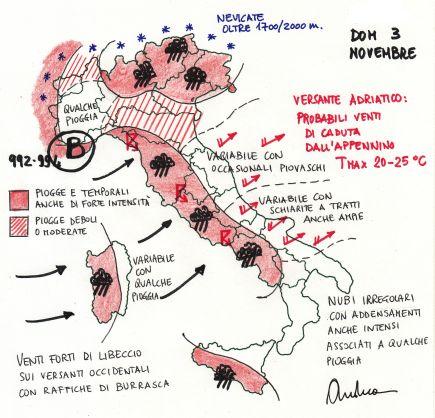 NEVICATE
OLTRE 1700/2000 m.
DOM 3
NOVEMBRE
QUALCHE
PIOGGIA
VERSANTE ADRIATICO:
PROBABILI VENTI
DI CADUTA
DALL'APPENNINO
TMAX 20-25 °C
B
992-994
VARIABILE CON
OCCASIONALI PIOVASCHI
PIOGGE E TEMPORALI
ANCHE DI FORTE INTENSITÀ
PIOGGE DEBOLI
O MODERATE
VARIABILE CON
SCHIARITE A TRATTI
ANCHE AMPIE
VARIABILE
CON
QUALCHE
PIOGGIA
NUBI IRREGOLARI
CON ADDENSAMENTI
ANCHE INTENSI
ASSOCIATI A QUALCHE
PIOGGIA
VENTI FORTI DI LIBECCIO
SUI VERSANTI OCCIDENTALI
CON RAFFICHE DI BURRASCA
Andrea